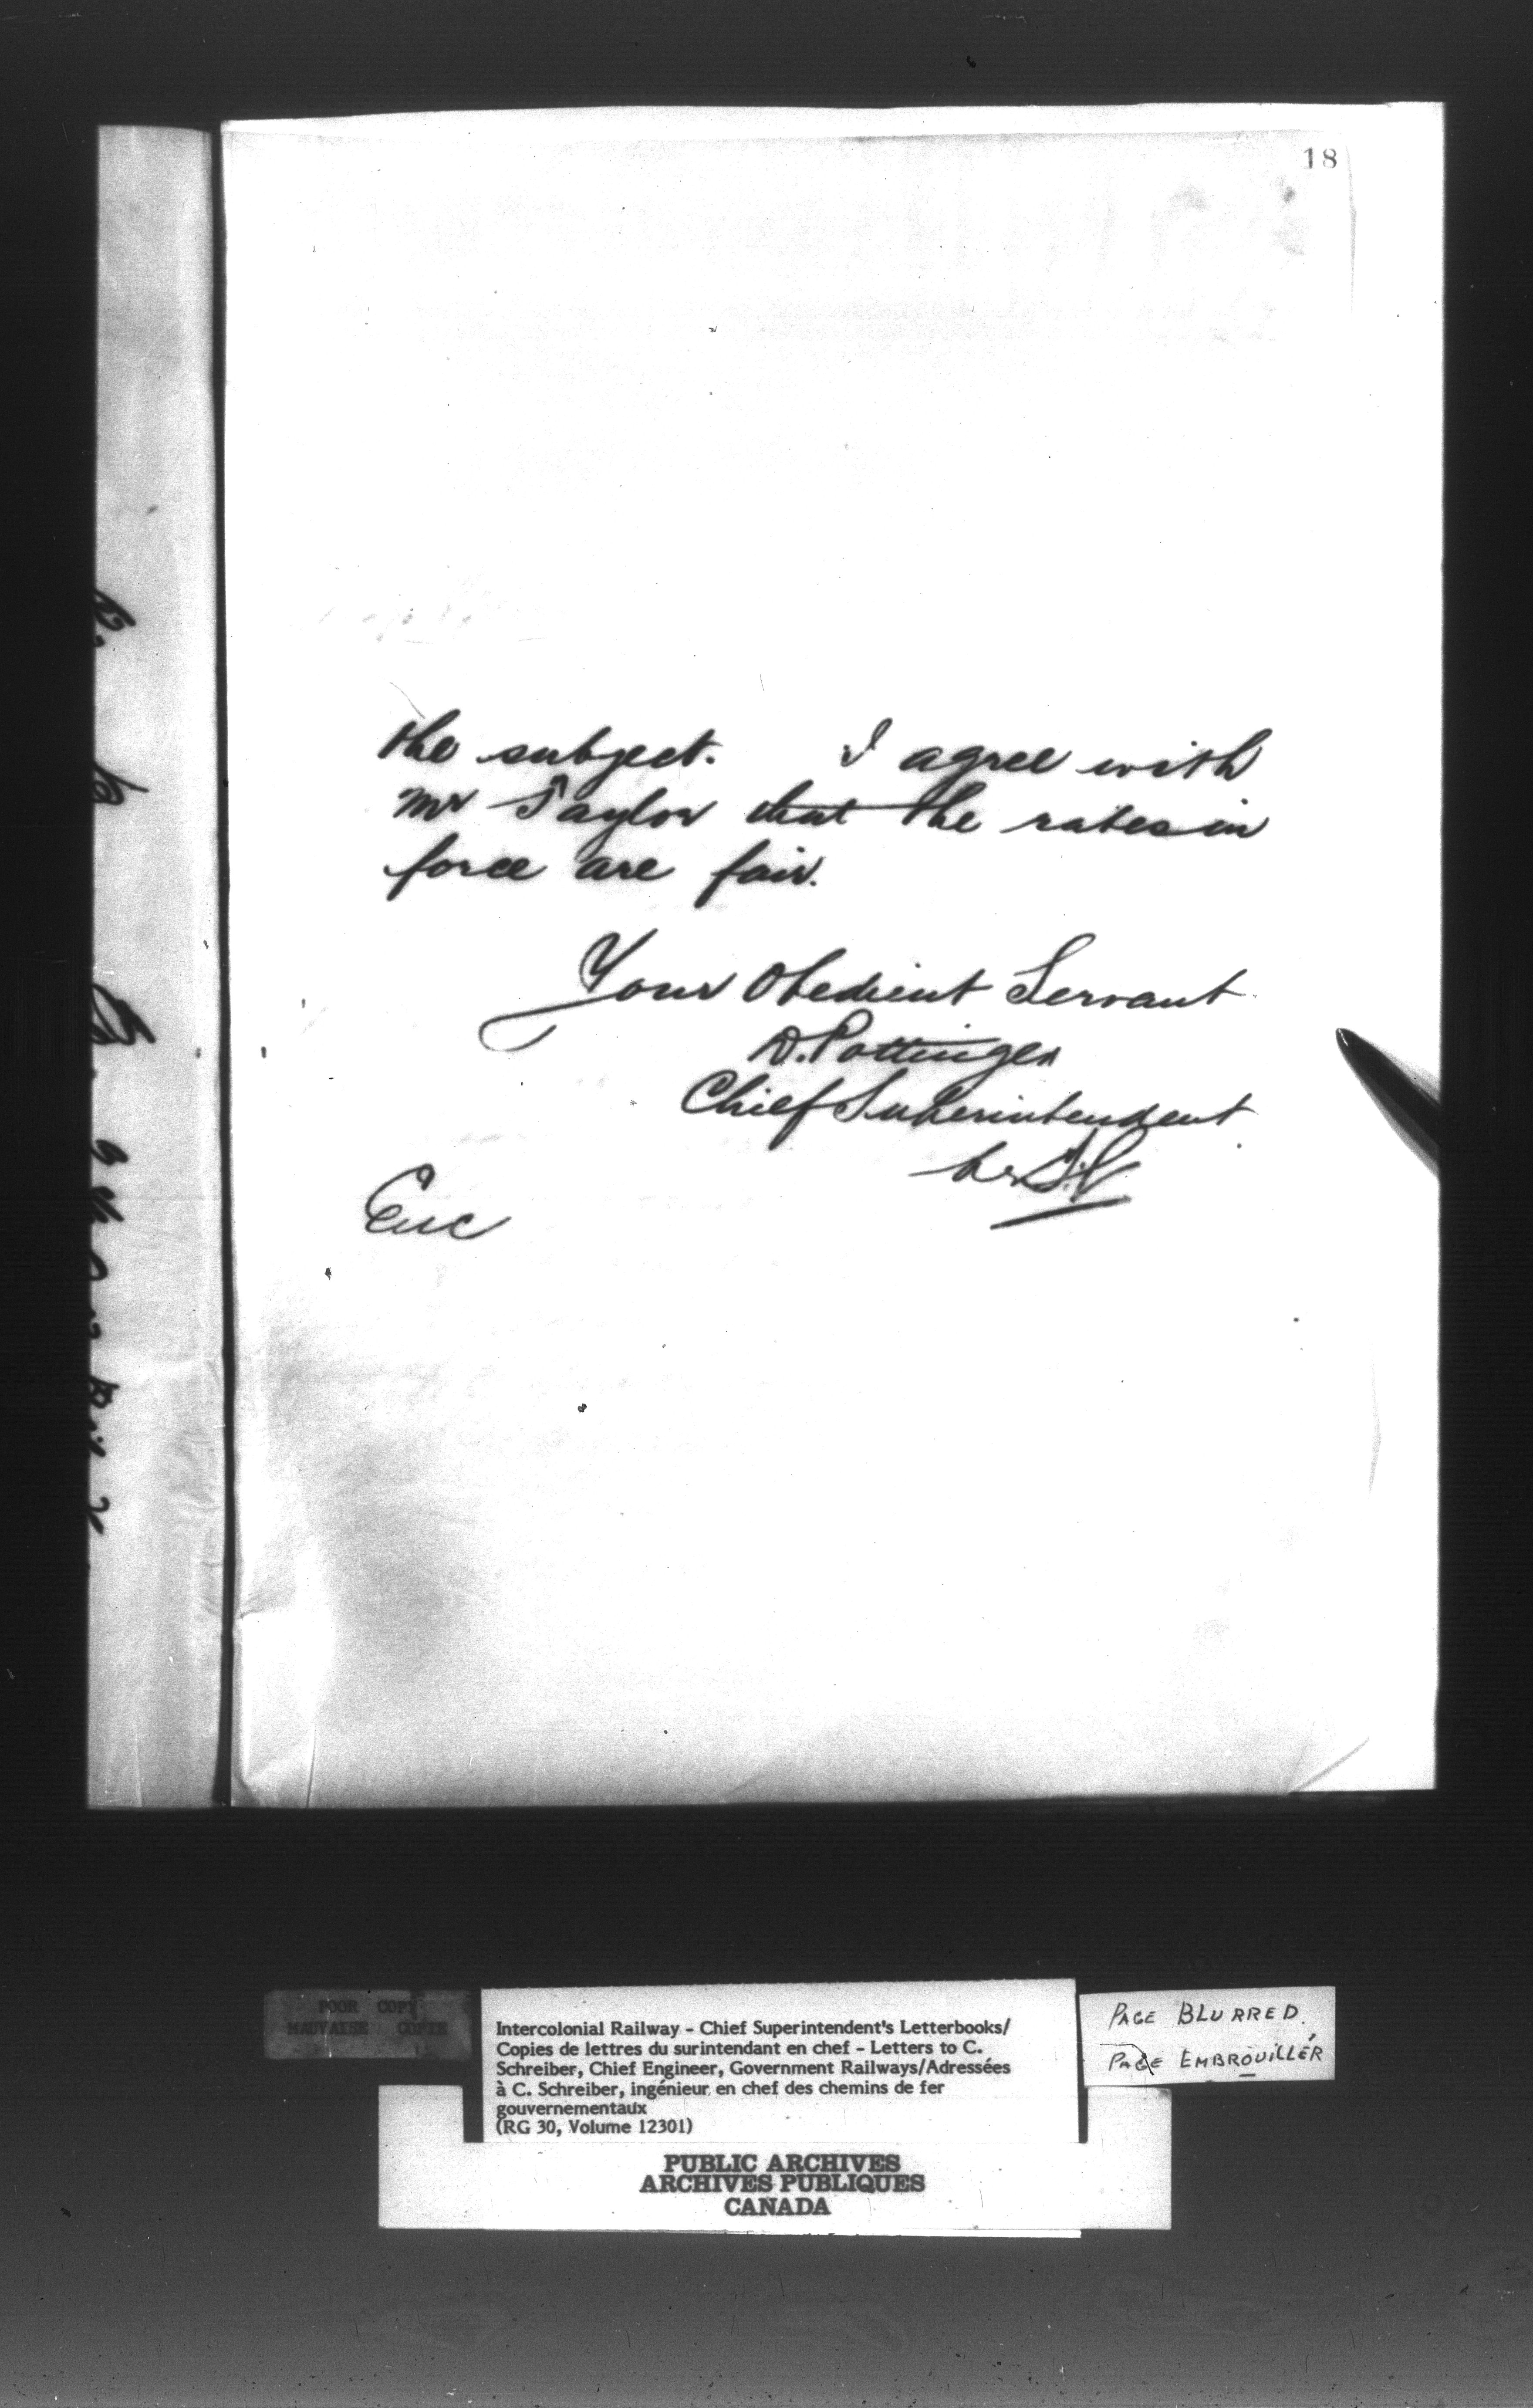 18
the subject. I agree with
Mr Taylor that the rates in
force are fair.
Your Obedient Servant
D. Pottinger
Chief Superintendent
Per
Enc
POOR COPY
MAUVAISE COPIE
Intercolonial Railway - Chief Superintendent's Letterbooks/
Copies de lettres du surintendant en chef - Letters to C.
Schreiber, Chief Engineer, Government Railways/Adressées
à C. Schreiber, ingénieur en chef des chemins de fer
gouvernementaux
(RG 30, Volume 12301)
PAGE BLURRED.
PAGE EMBROUILLÉR
PUBLIC ARCHIVES
ARCHIVES PUBLIQUES
CANADA